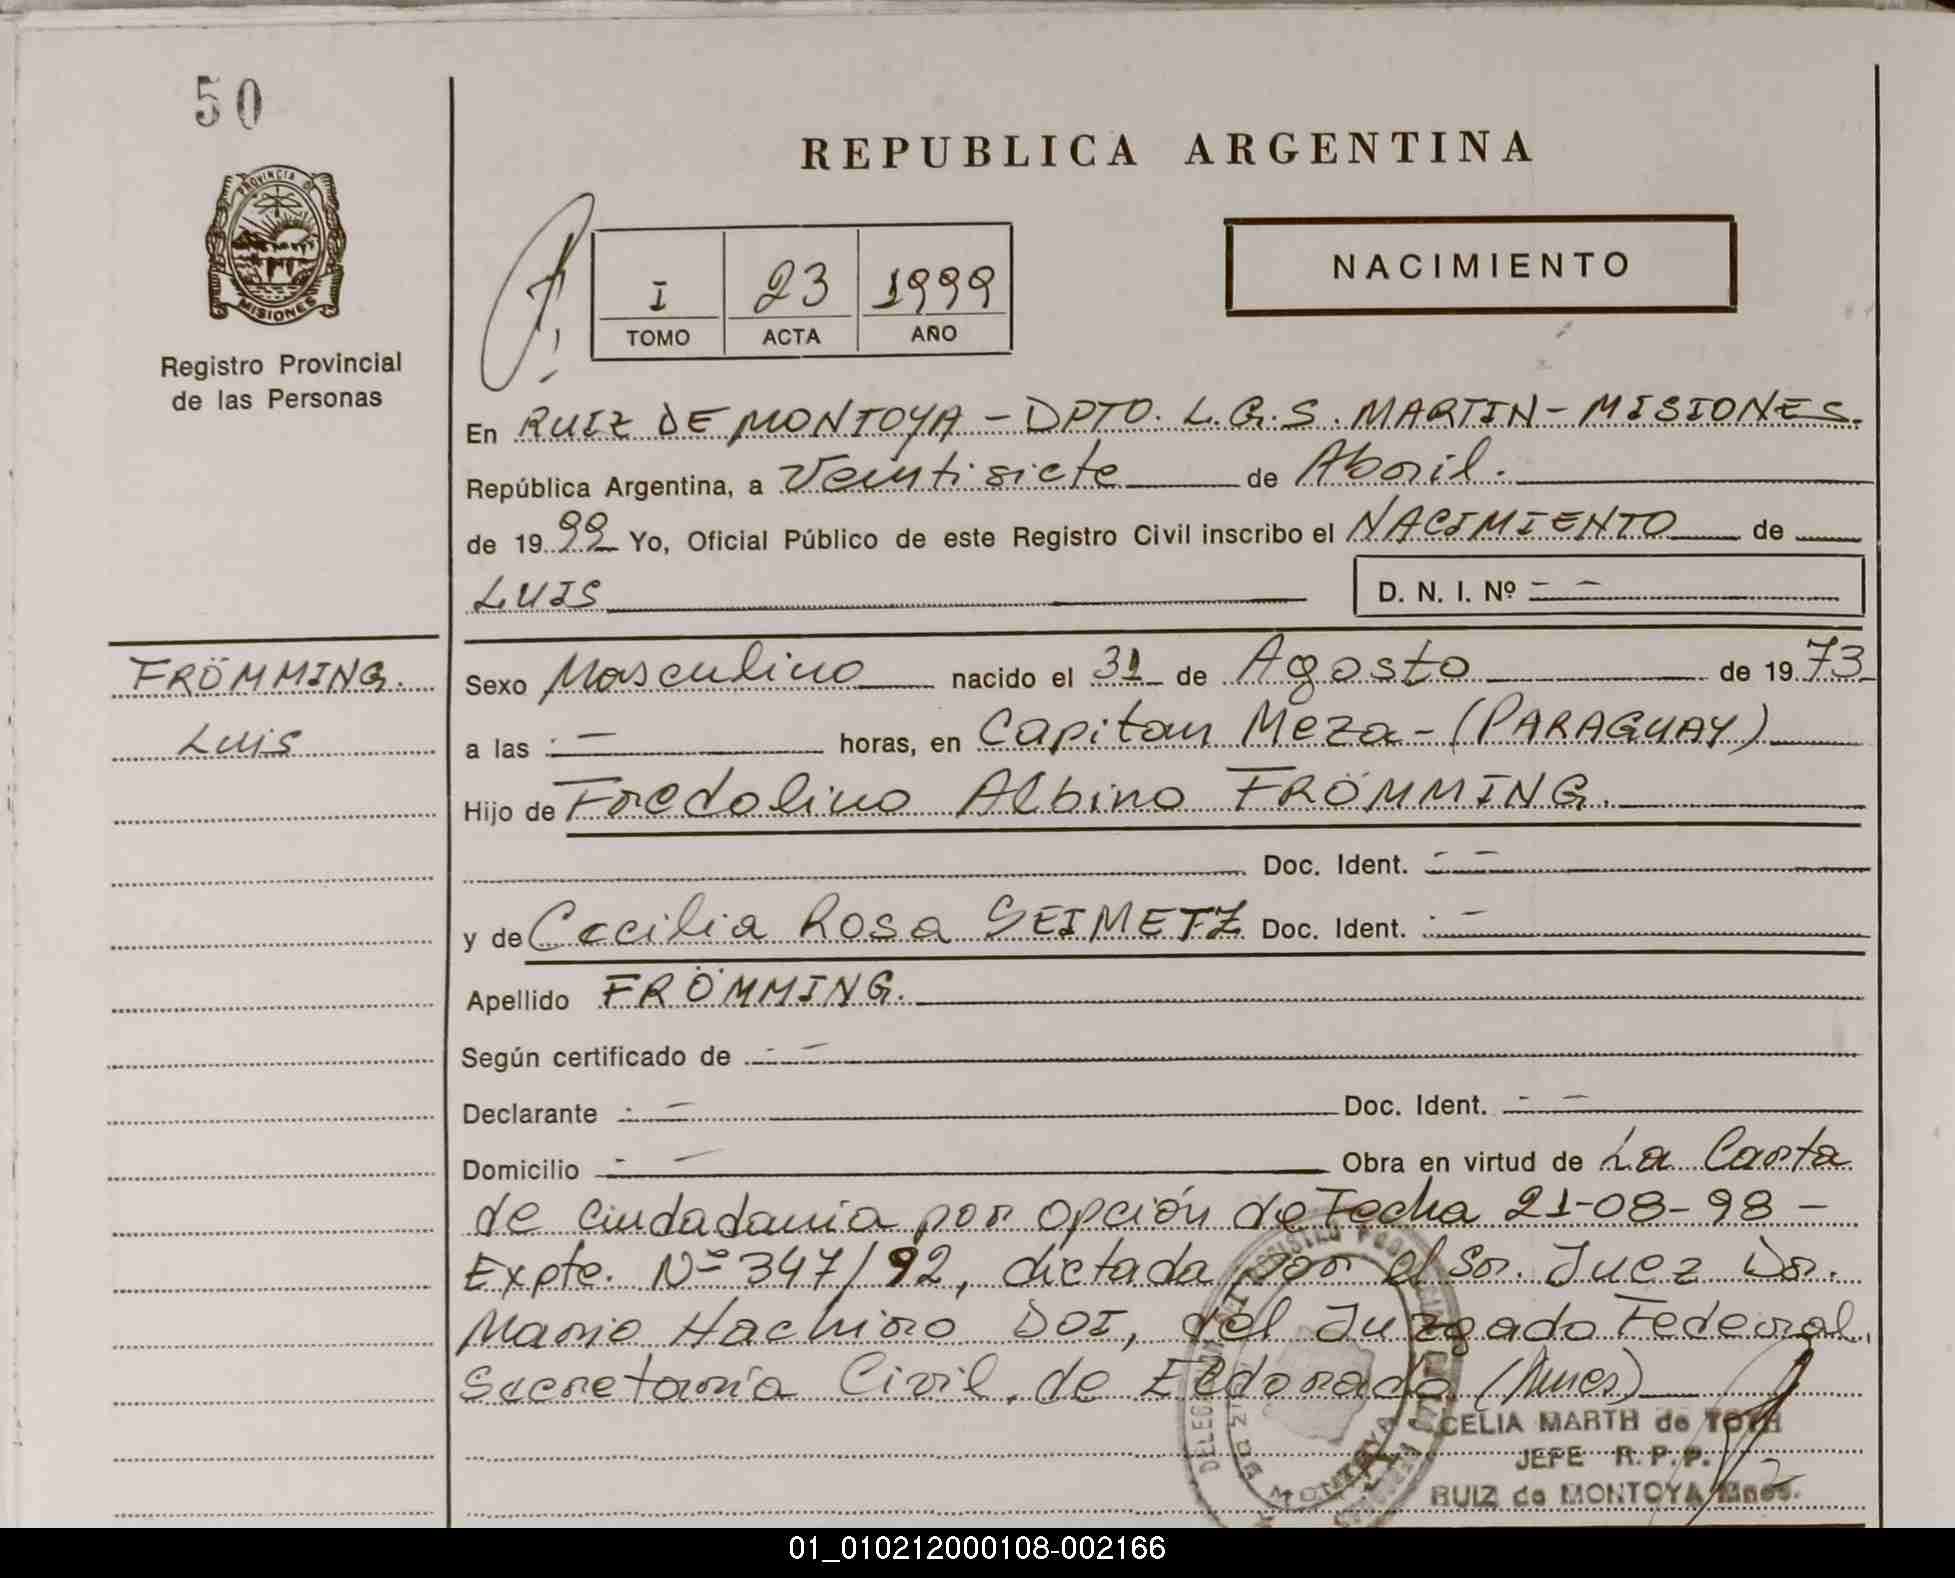 50
REPUBLICA ARGENTINA
PROVINCIA DE
MISIONES
Registro Provincial
de las Personas
I 23 1999
TOMO ACTA AÑO
NACIMIENTO
En RUIZ DE MONTOYA - DPTO. L.G.S. MARTIN - MISIONES.
República Argentina, a Veintisiete de Abril.
de 1999 Yo, Oficial Público de este Registro Civil inscribo el NACIMIENTO de
LUIS D. N. I. Nº - -
FRÖMMING.
Luis
Sexo Masculino nacido el 31 de Agosto de 1973
a las - horas, en Capitan Meza - (PARAGUAY)
Hijo de Fredolino Albino FRÖMMING.
Doc. Ident. - -
y de Cecilia Rosa SEIMETZ Doc. Ident. -
Apellido FRÖMMING.
Según certificado de - -
Declarante - - Doc. Ident. - -
Domicilio - - Obra en virtud de La Carta
de ciudadanía por opción de Fecha 21-08-98 -
Expte. Nº 347/92, dictada por el Sr. Juez Dr.
Mario Hachiro DOI, del Juzgado Federal,
Secretaría Civil, de Eldorado (Mnes)
CELIA MARTH de TOTH
JEFE R.P.P.
RUIZ de MONTOYA Mnes.
MONTOYA
01_010212000108-002166